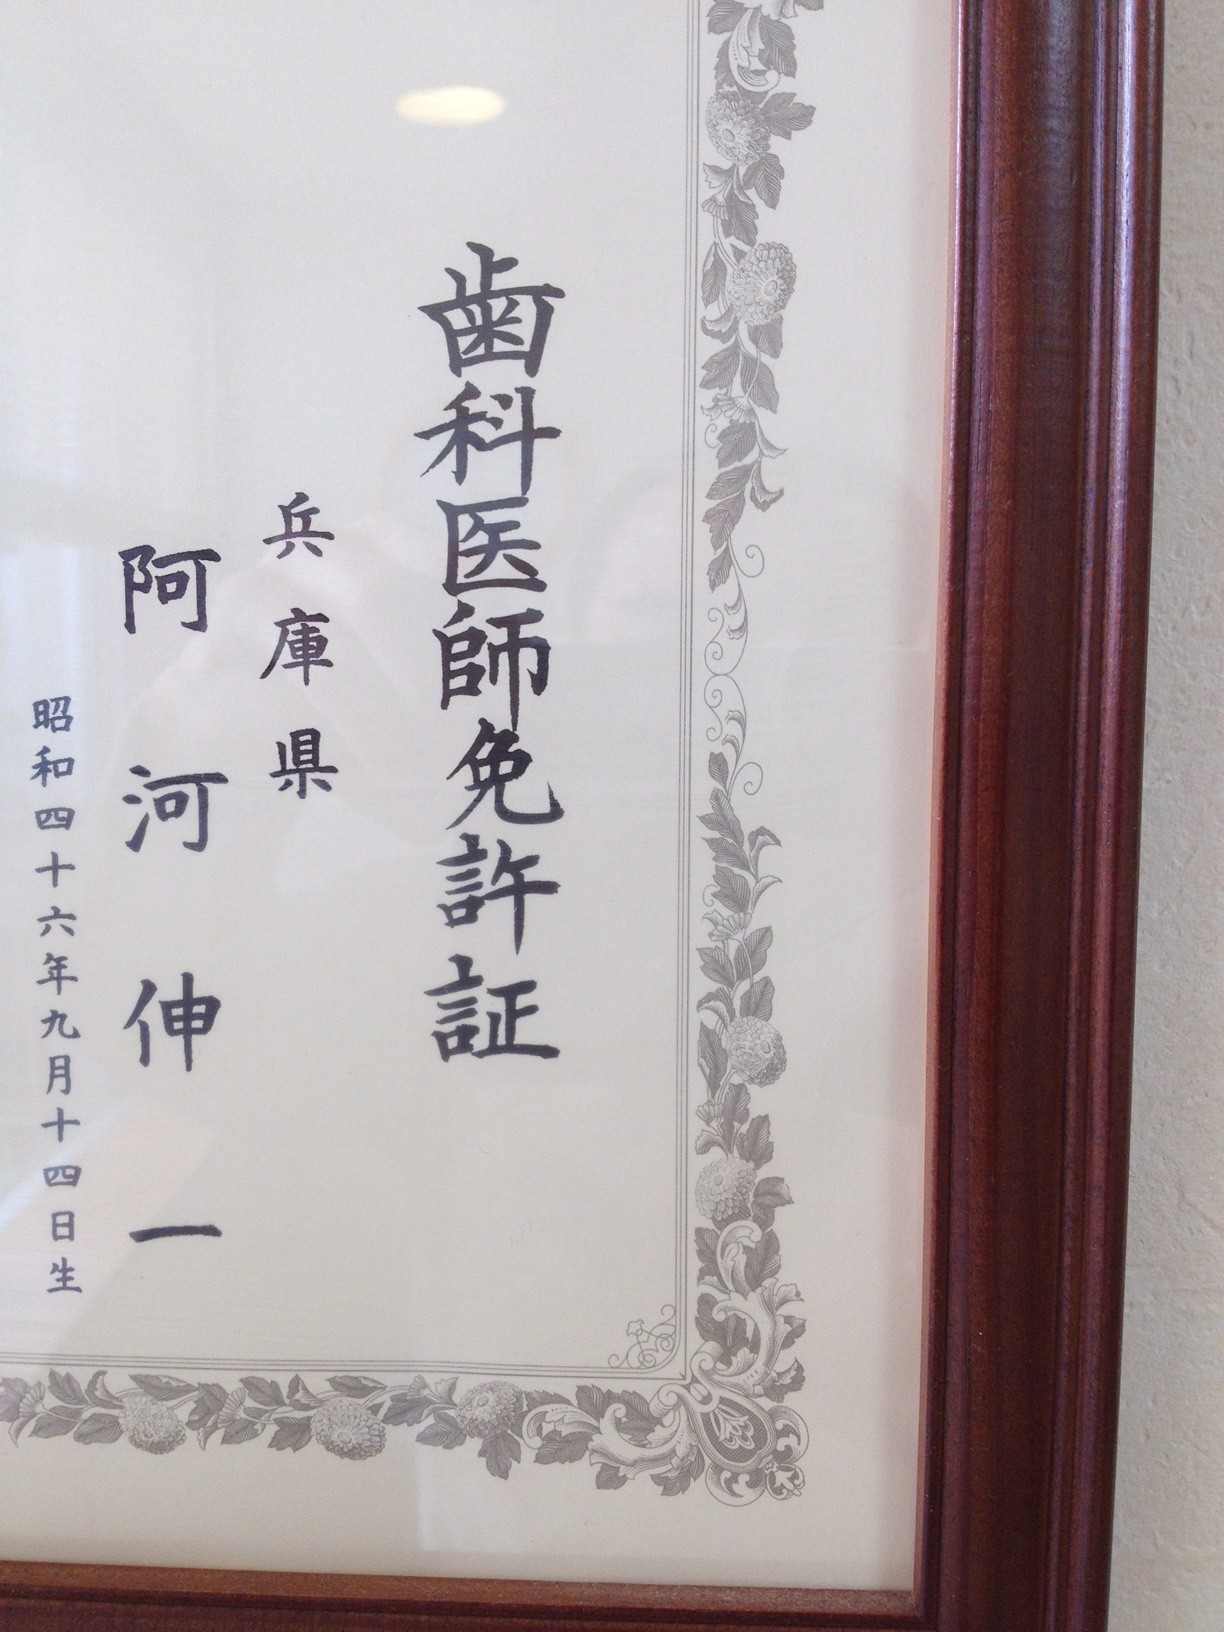 歯科医師免許証
兵庫県
阿河伸一
昭和四十六年九月十四日生